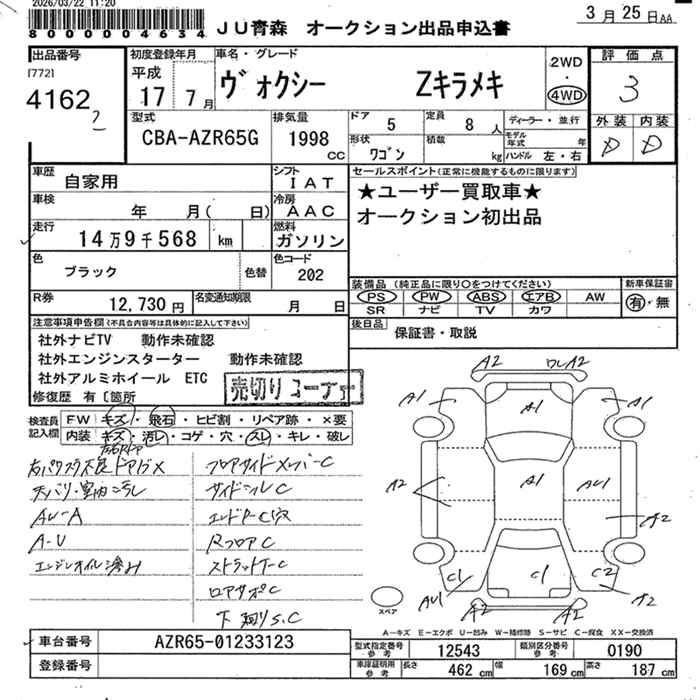 2026/03/22_11:20
8000004634
JU青森 オークション出品申込書
3月25日AA
出品番号
[772]
4162
初度登録年月
平成
17 7月
車名・グレード
ヴォクシー Zキラメキ
2WD
・
4WD
評価点
3
外装 内装
D D
型式
CBA-AZR65G
排気量
1998
CC
ドア 5
定員 8人
形状
ワゴン
積載
kg
ディーラー・並行
モデル年式 年
ハンドル 左・右
車歴
自家用
シフト
IAT
車検
年 月( 日)
冷房
AAC
走行
14万9千568 km
燃料
ガソリン
色
ブラック
色替
色コード
202
R券
12,730円
名変通知期限
月 日
セールスポイント(正常に機能するものに限ります)
★ユーザー買取車★
オークション初出品
装備品 (純正品に限り○をつけてください)
PS PW ABS エアB AW
SR ナビ TV カワ
新車保証書
有・無
後日品
保証書・取説
注意事項申告欄(不具合内容等は具体的に記入して下さい)
社外ナビTV 動作未確認
社外エンジンスターター 動作未確認
社外アルミホイール ETC
修復歴 有〔箇所
売切りコーナー
検査員記入欄
FW キズ・飛石・ヒビ割・リペア跡・×要
内装 キズ・汚レ・コゲ・穴・スレ・キレ・破レ
フロアサイドメンバーC
サイドシルC
AU-A
A-U
RフロアC
下廻りS.C
A2
A2
A1
A1
A1
A2
A1
AU1
A2
C1
C1
C2
AU1
A2
A2
A2
スペア
A-キズ E-エクボ U-凹み W-補修跡 S-サビ C-腐食 XX-交換済
車台番号
AZR65-01233123
登録番号
型式指定番号
参考
12543
類別区分番号
参考
0190
車庫証明用
参考
長さ 462cm
幅 169cm
高さ 187cm